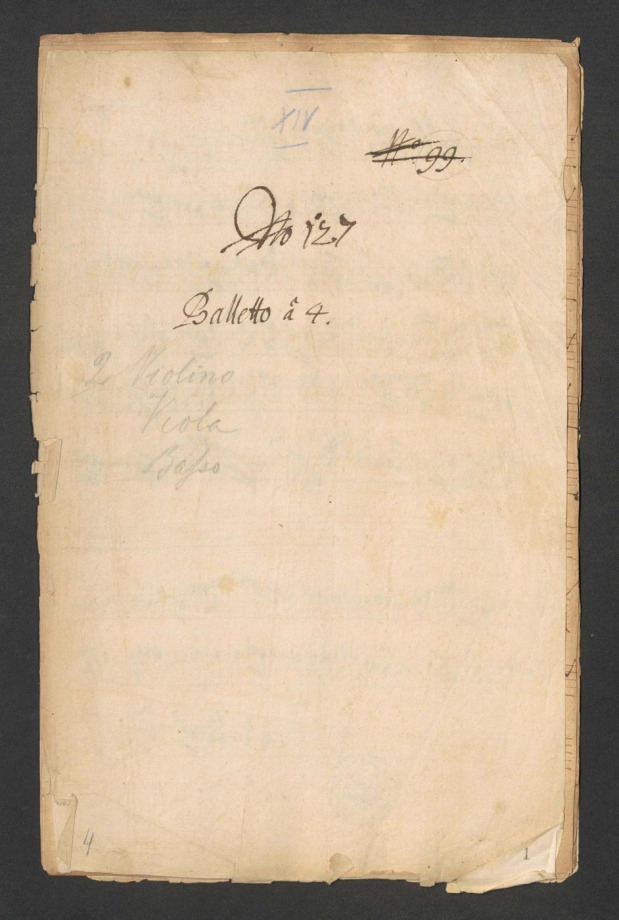 XIV
No 99.
No 127
Balletto â 4.
2 Violino
Viola
Basso
4
1